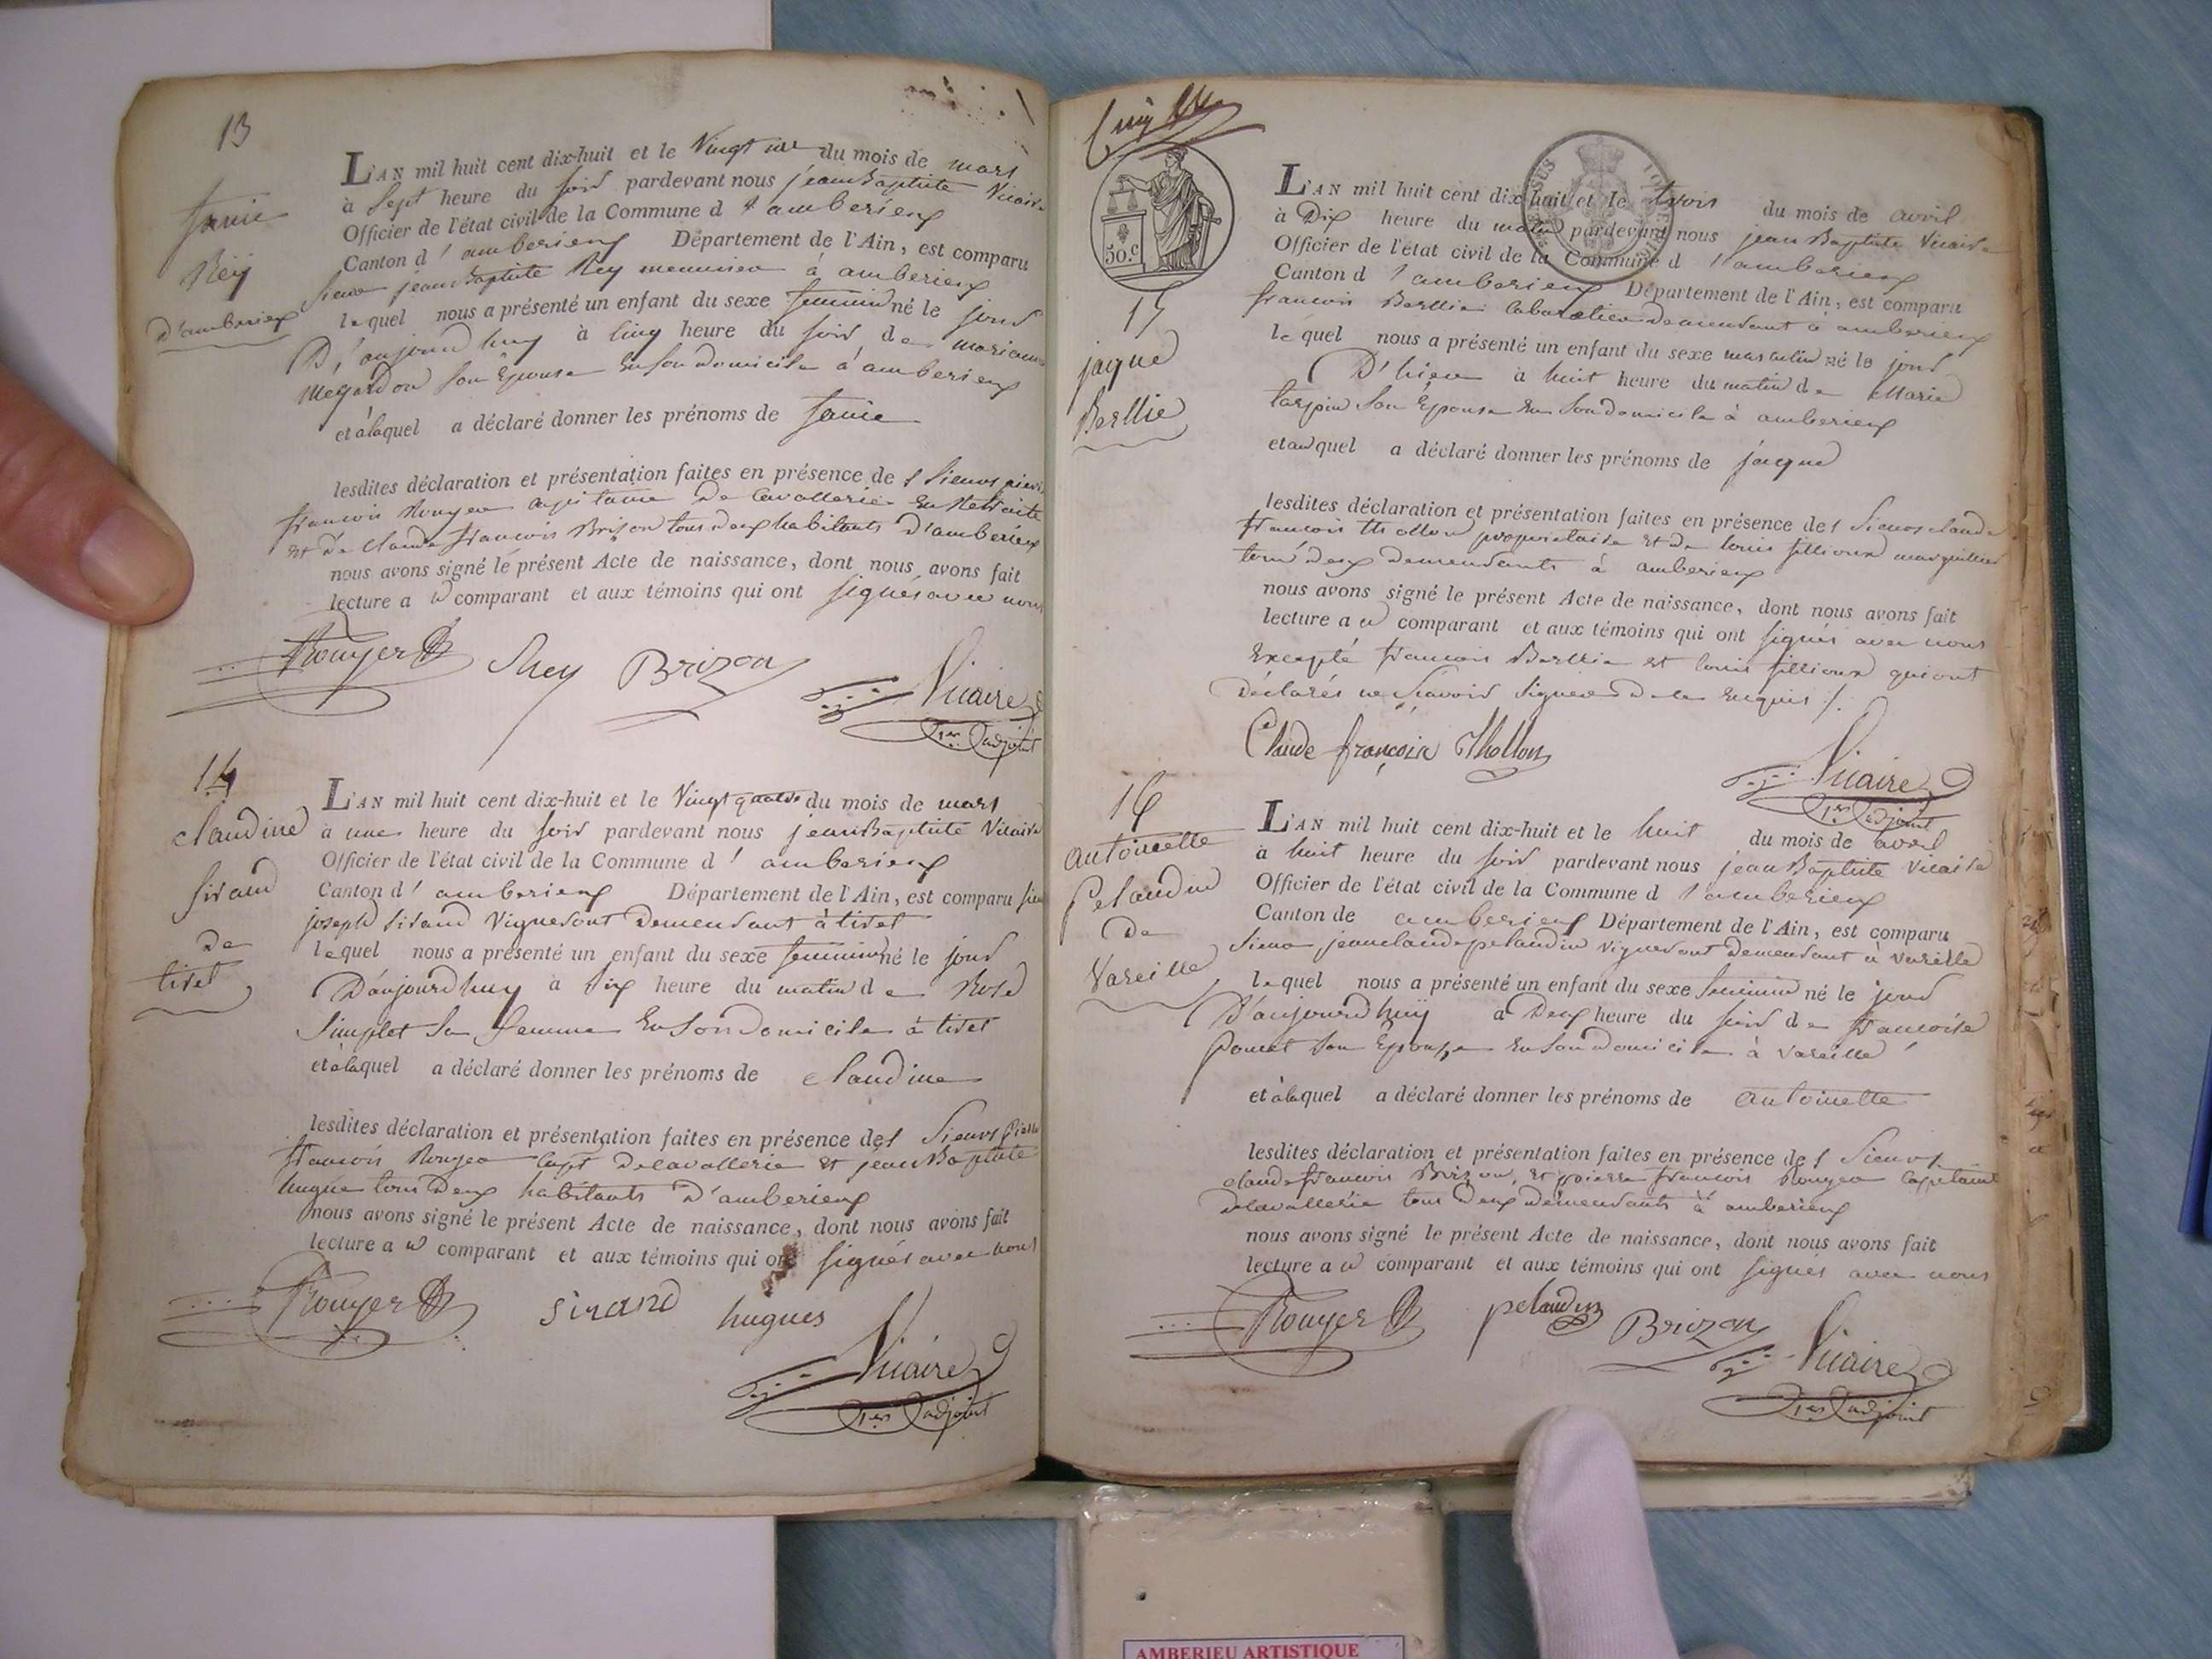 13
fanie
Rëÿ
d'amberieux
L'AN mil huit cent dix-huit et le Vingt du mois de mars
à Sept heure du soir pardevant nous jean Baptiste Vicaire
Officier de l'état civil de la Commune d'amberieux
Canton d'amberieux Département de l'Ain, est comparu
Sieur jean Baptiste Rey menuisier à amberieux
lequel nous a présenté un enfant du sexe feminin né le jour
D'aujourdhuy à cinq heure du soir de marianne
megardon son Epouse En son domicile à amberieux
et à laquel a déclaré donner les prénoms de fanie
lesdites déclaration et présentation faites en présence des Sieurs pierre
francois Rouyer capitaine De Cavallerie En Retraite
et De Claude francois Brison tous deux habitants D'amberieux
nous avons signé le présent Acte de naissance, dont nous avons fait
lecture a u comparant et aux témoins qui ont signés avec nous
Rouyer Rey Brizon Vicaire
1er adjoint
14
claudine
sirand
de
tiret
L'AN mil huit cent dix-huit et le Vingt quatre du mois de mars
à une heure du soir pardevant nous jean Baptiste Vicaire
Officier de l'état civil de la Commune d'amberieux
Canton d'amberieux Département de l'Ain, est comparu sieur
joseph sirand Vigneront demeurant à tiret
lequel nous a présenté un enfant du sexe feminin né le jour
D'aujourdhuy à six heure du matin de Rose
Simplet sa femme En son domicile à tiret
et à laquel a déclaré donner les prénoms de claudine
lesdites déclaration et présentation faites en présence des Sieurs pierre
francois Rouyer Capt Decavallerie et jean Baptiste
hugue tous Deux habitants D'amberieux
nous avons signé le présent Acte de naissance, dont nous avons fait
lecture a u comparant et aux témoins qui ont signés avec nous
Rouyer sirand hugues
Vicaire
1er adjoint
50.C
15
jaque
Berllie
L'AN mil huit cent dix-huit et le trois du mois de avril
à Dix heure du matin pardevant nous jean Baptiste Vicaire
Officier de l'état civil de la Commune d'amberieux
Canton d'amberieux Département de l'Ain, est comparu
francois Berllie demeurant à amberieux
lequel nous a présenté un enfant du sexe masculin né le jour
D'hier à huit heure du matin de Marie
tarpin son Epouse En son domicile à amberieux
et auquel a déclaré donner les prénoms de jacque
lesdites déclaration et présentation faites en présence des Sieurs claude
francois thollon proprietaire et De louis fillioux marguillier
tous deux demeurants à amberieux
nous avons signé le présent Acte de naissance, dont nous avons fait
lecture a u comparant et aux témoins qui ont signés avec nous
Excepté francois Berllie et louis fillioux qui ont
Déclarés ne Scavoir signer De ce Enquis /.
Claude françois Thollon
Vicaire
1er adjoint
16
antoinette
Pelaudin
De
Vareille
L'AN mil huit cent dix-huit et le huit du mois de avril
à huit heure du soir pardevant nous jean Baptiste Vicaire
Officier de l'état civil de la Commune d'amberieux
Canton de amberieux Département de l'Ain, est comparu
Sieur jean claude pelaudin Vigneront Demeurant à Vareille
lequel nous a présenté un enfant du sexe feminin né le jour
D'aujourdhuÿ à Deux heure du soir de francoise
Poncet son Epouse En son domicile à Vareille
et à laquel a déclaré donner les prénoms de antoinette
lesdites déclaration et présentation faites en présence des Sieurs
claude francois Brizon, et pierre francois Rouyer Capitaine
decavallerie tous Deux demeurants à amberieux
nous avons signé le présent Acte de naissance, dont nous avons fait
lecture a u comparant et aux témoins qui ont signés avec nous
Rouyer pelaudin Brizon Vicaire
1er adjoint
AMBERIEU ARTISTIQUE